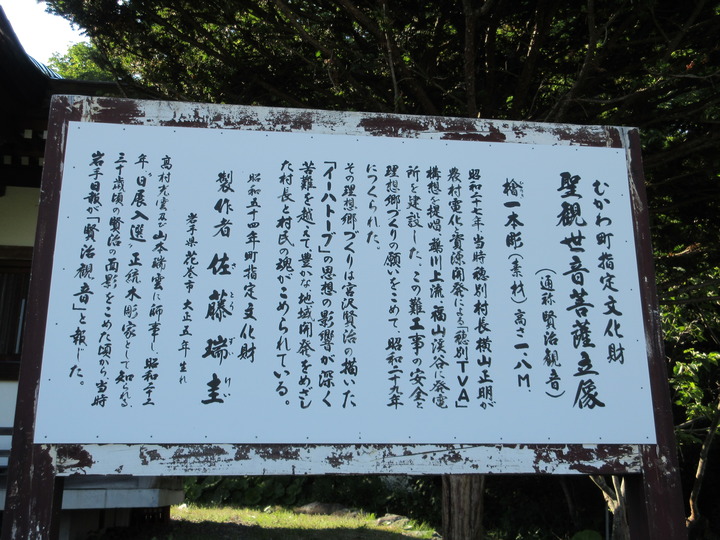 むかわ町指定文化財
聖観世音菩薩立像
（通称賢治観音）
檜一本彫（素材）高さ一、八M
昭和二十七年、当時穂別村長横山正明が
農村電化と資源開発による「穂別TVA」
構想を提唱、鵡川上流・福山渓谷に発電
所を建設した。この難工事の安全と
理想郷づくりの願いをこめて、昭和二十九年
につくられた。
その理想郷づくりは宮沢賢治の描いた
「イーハトーブ」の思想の影響が深く
苦難を越えて豊かな地域開発をめざし
た村長と村民の魂がこめられている。
昭和五十四年町指定文化財
製作者 佐藤瑞圭
さとうずいけい
岩手県花巻市 大正五年生れ
高村光雲及び山本瑞雲に師事し、昭和二十二
年、日展入選。正統木彫家として知られる。
三十歳頃の賢治の面影をこめた頃から、当時
岩手日報が「賢治観音」と報じた。